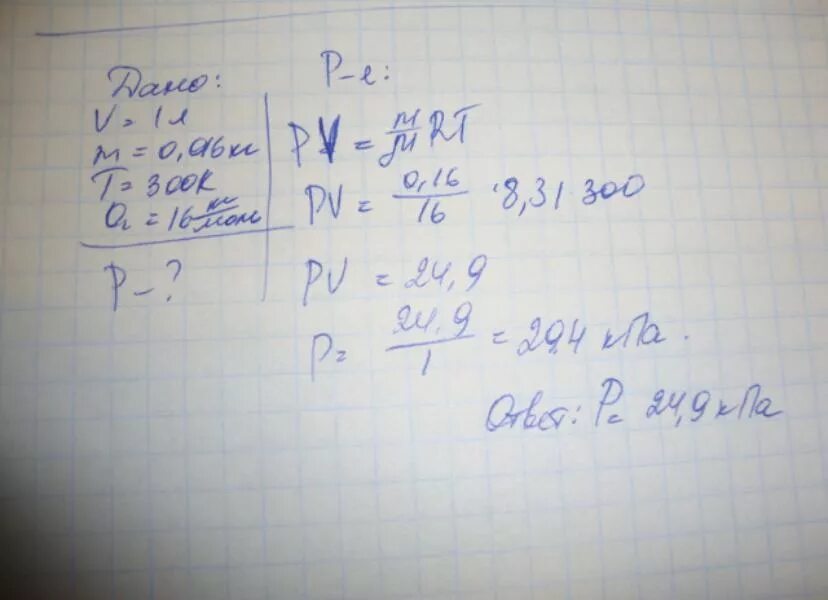 Дано:
V = 1 л
m = 0,016 кг
T = 300К
O₂ = 16 кг/моль
P - ?
Р-е:
PV = m/M RT
PV = 0,16/16 · 8,31 · 300
PV = 24,9
P = 24,9/1 = 29,4 кПа.
Ответ: P = 24,9 кПа